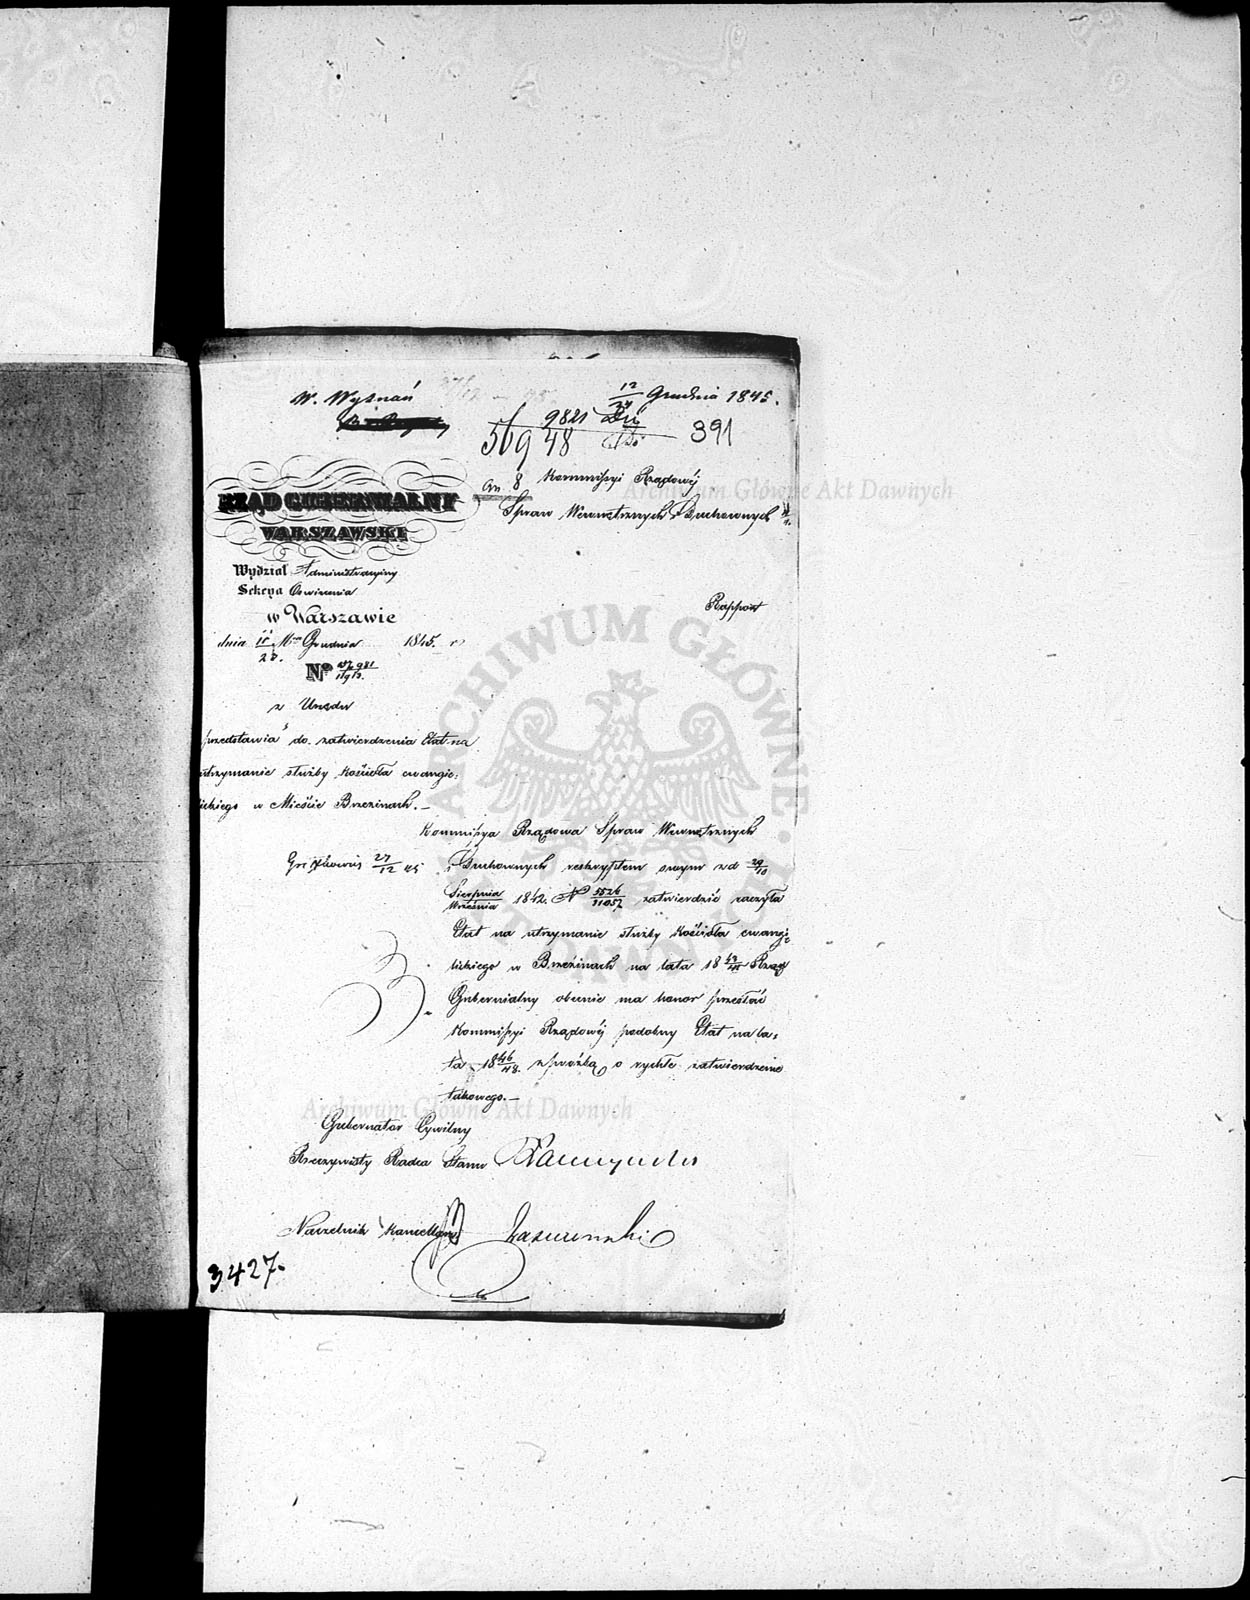 W. Wyznań
12/24 Grudnia 1845.
9821
56948
391
an 8
Kommissyi Rządowéj
Spraw Wewnętrznych i Duchownych
RZĄD GUBERNIALNY
WARSZAWSKI
Wydział Administracyjny
Sekcya Oświecenia
w Warszawie
dnia Mca Grudnia 1845. r
Rapport
No
z Urzędu
przedstawia do zatwierdzenia Etat na
utrzymanie służby Kościoła ewangie:
lickiego w Mieście Brzezinach. —
Kommissya Rządowa Spraw Wewnętrznych
27/12 45
i Duchownych reskryptem swym z d 29/10
Sierpnia/Września 1842. N 5526/11057 zatwierdzić raczyła
Etat na utrzymanie służby Kościoła ewangie
lickiego w Brzezinach na lata 18 43/45 Rząd
Gubernialny obecnie ma honor przesłać
Kommissyi Rządowéj podobny Etat na la=
ta 18 46/48. z prośbą o rychłe zatwierdzenie
takowego. —
Gubernator Cywilny
Rzeczywisty Radca Stanu
Naczelnik Kancellaryi
3427.
Archiwum Główne Akt Dawnych
ARCHIWUM GŁÓWNE AKT DAWNYCH
Archiwum Główne Akt Dawnych